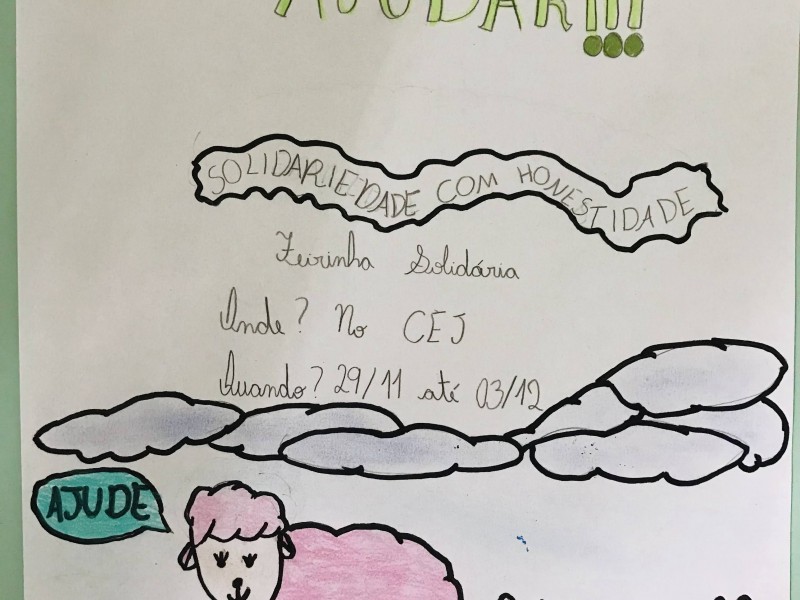 AJUDAR!!!
SOLIDARIEDADE COM HONESTIDADE
Feirinha Solidária
Onde? No CEJ
Quando? 29/11 até 03/12
AJUDE